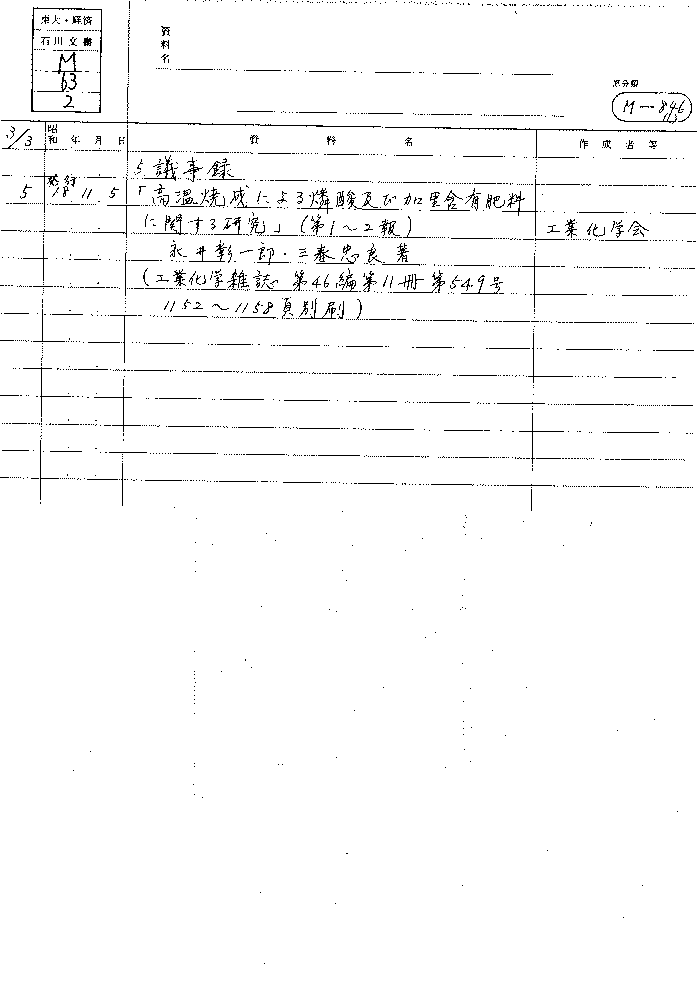 東大・経済
石川文書
M
63
2
資料名
原分類
M-846
13
3/3
昭和 年 月 日
資料名
作成者等
5. 議事録
発行
5 18 11 5 「高温焼成による燐酸及び加里含有肥料
に関する研究」(第1~2報) 工業化学会
永井彰一郎・三春忠良著
(工業化学雑誌 第46編第11冊第549号
1152~1158頁別刷)